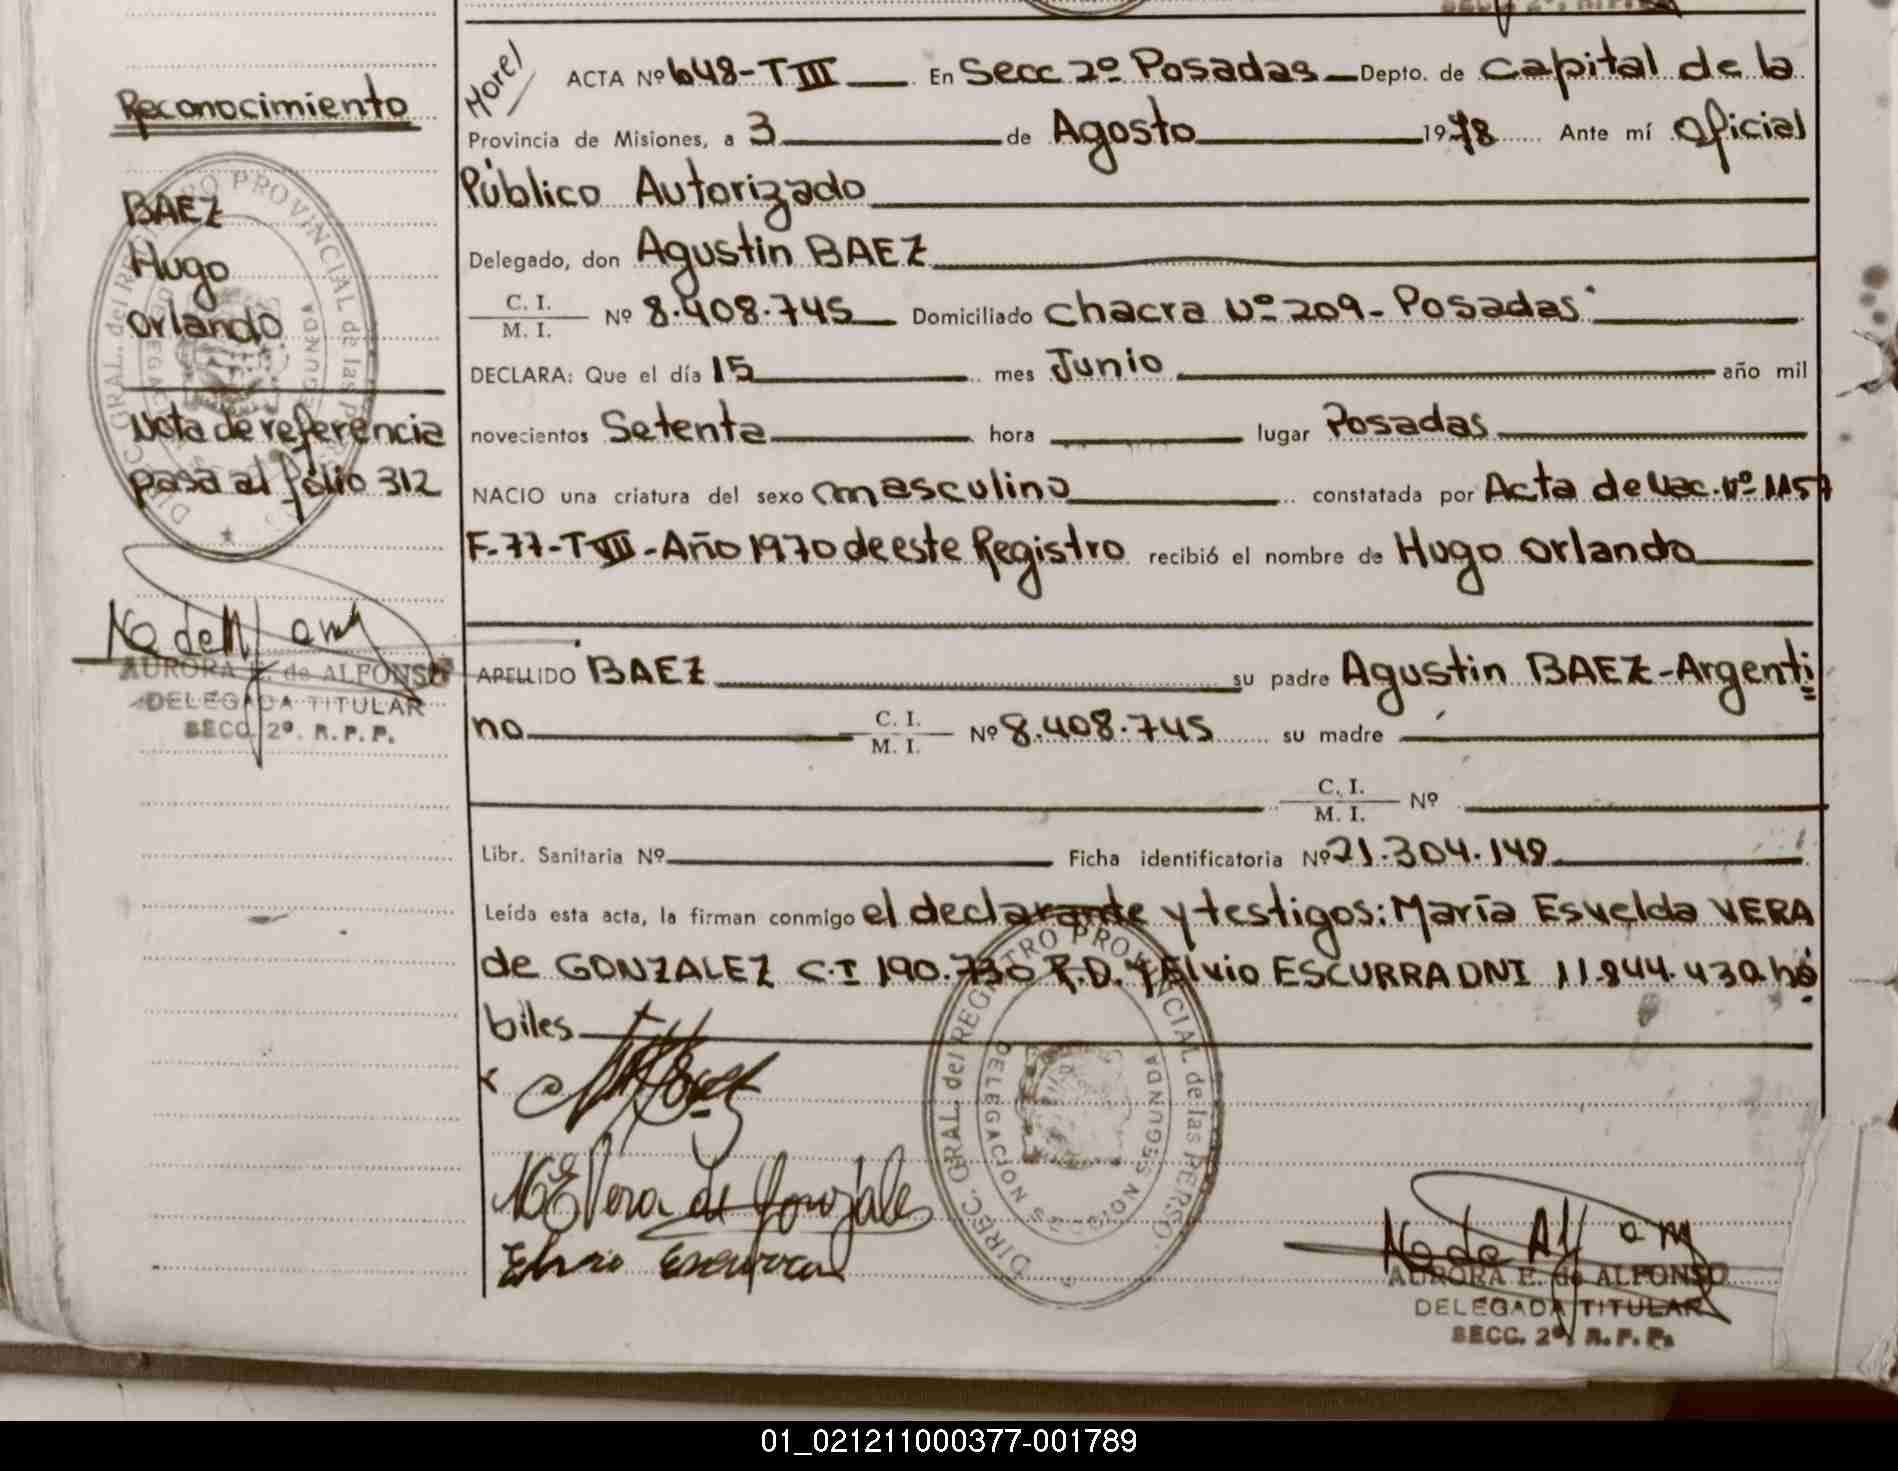 Morel
ACTA Nº 648-T III En Secc 2º Posadas Depto. de Capital de la
Reconocimiento
Provincia de Misiones, a 3 de Agosto 1978 Ante mí Oficial
Público Autorizado
BAEZ
Hugo
Orlando
Delegado, don Agustin BAEZ
C. I.
M. I. Nº 8.408.745 Domiciliado Chacra Nº 209-Posadas
DECLARA: Que el día 15 mes Junio año mil
Nota de referencia
pasa al fólio 312
novecientos Setenta hora lugar Posadas
NACIO una criatura del sexo masculino constatada por Acta de Nac. Nº 1157
F-77-T VII-Año 1970 de este Registro recibió el nombre de Hugo Orlando
AURORA E. de ALFONSO
DELEGADA TITULAR
SECC. 2º. R. P. P.
APELLIDO BAEZ su padre Agustin BAEZ-Argenti
no C. I.
M. I. Nº 8.408.745 su madre
C. I.
M. I. Nº
Libr. Sanitaria Nº Ficha identificatoria Nº 21.304.149
Leída esta acta, la firman conmigo el declarante y testigos: María Esvelda VERA
de GONZALEZ C.I 190.730 P.D. y Elvio ESCURRA DNI 11.844.430 há
biles
DIREC. GRAL. del REGISTRO PROVINCIAL de las PERSO.
DELEGACION SEGUNDA
M E Vera de Gonzalez
Elvio Escurra
AURORA E. de ALFONSO
DELEGADA TITULAR
SECC. 2º. R. P. P.
01_021211000377-001789